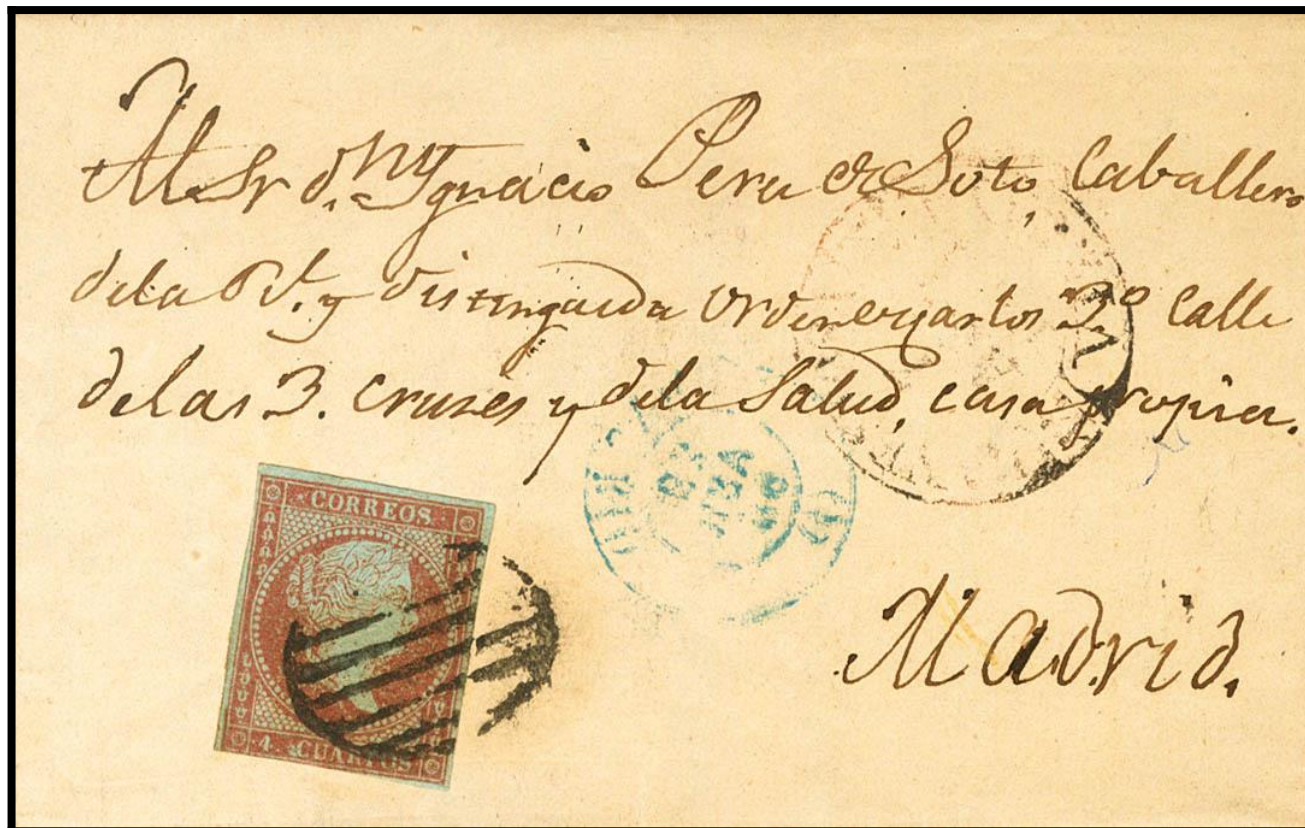 Al Sr d.n Ygnacio Pera de Soto, Caballero
dela Rl. y distinguida orden Carlos 3º Calle
delas 3. Cruzes y dela Salud, casa propria.
Madrid.
CORREOS
4. CUARTOS